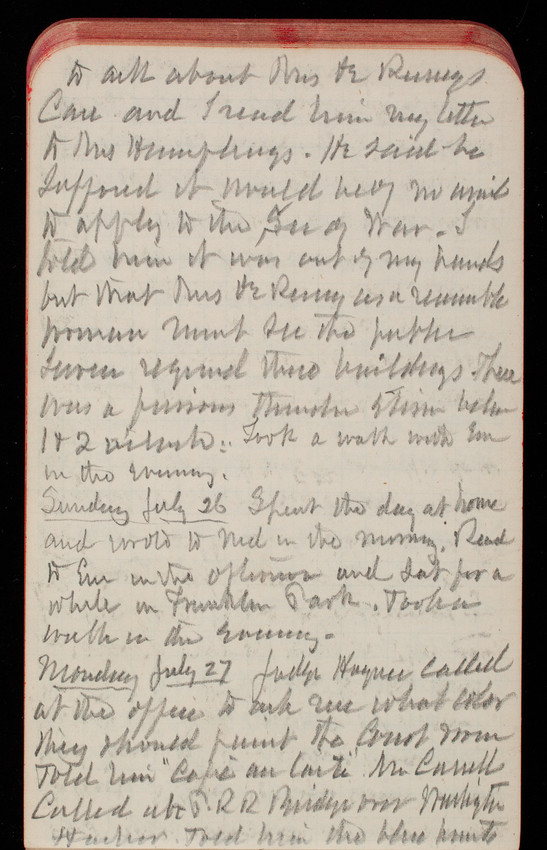 to ask about Mrs De Russys
Case and I read him my letter
to Mrs Humphreys. He said he
supposed it would be of no avail
to apply to the Sec of War. I
told him it was out of my hands
but that Mrs De Russy as a sensible
woman must see the public
service required these buildings. There
was a furious thunder storm between
1 & 2 o'clock. Took a walk with Em
in the evening.
Sunday July 26 Spent the day at home
and wrote to Ned in the morning. Read
to Em in the afternoon and sat for a
while in Franklin Park. Took a
walk in the evening.
Monday July 27 Judge Hagner called
at the office to ask me what color
they should paint the Court room
Told him "Cafe au lait" Mr Carroll
Called abt P.R.R Bridge over Washington
Harbor. Told him the blue prints